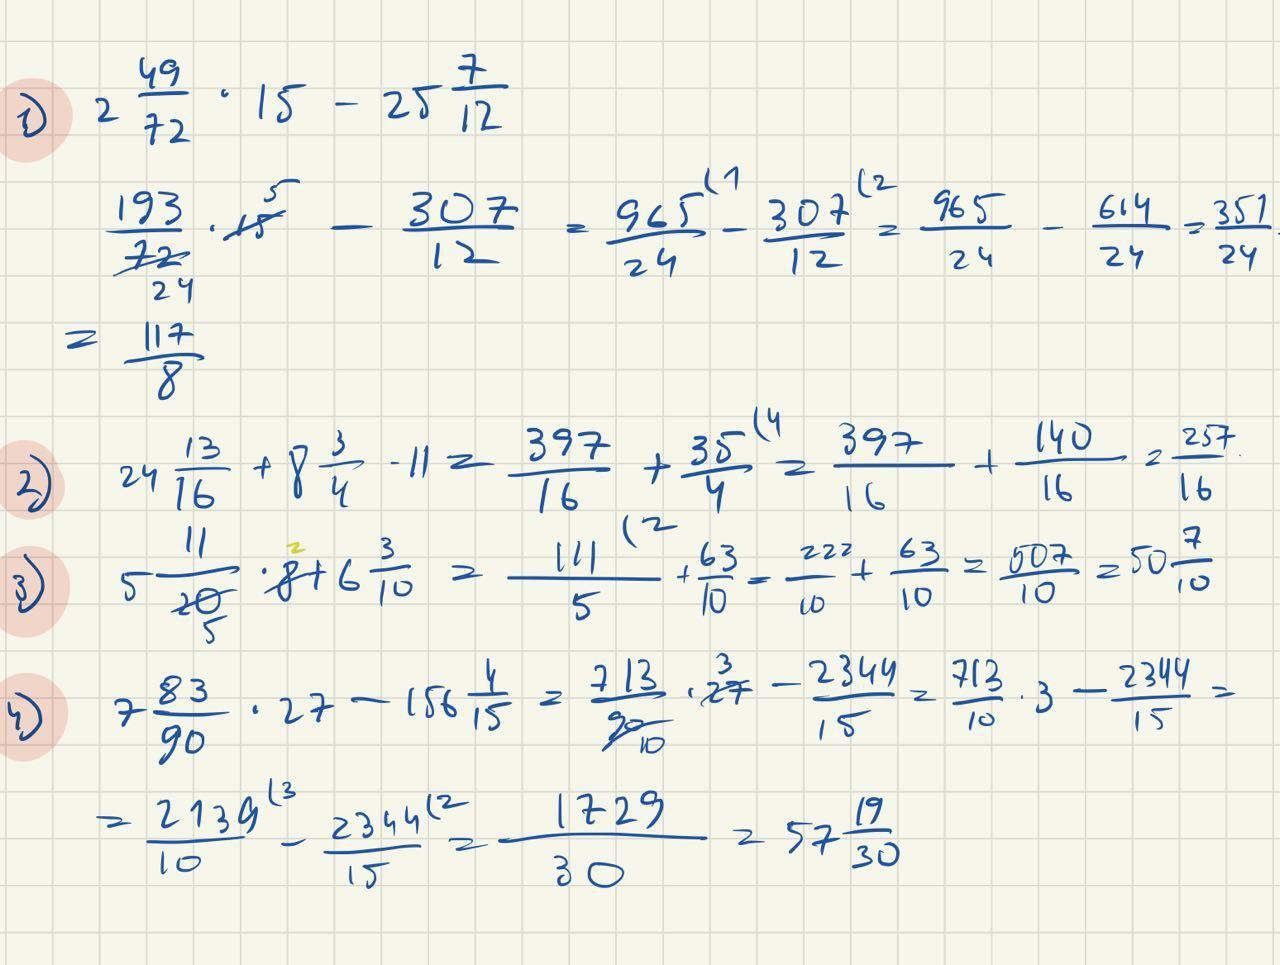 1) 2 49/72 · 15 - 25 7/12
193/72 24 · 15 5 - 307/12 = 965/24 (1 - 307/12 (2 = 965/24 - 614/24 = 351/24
= 117/8
2) 24 13/16 + 8 3/4 - 11 = 397/16 + 35/4 (4 = 397/16 + 140/16 = 257/16
3) 5 11/20 5 · 8 2 + 6 3/10 = 111/5 (2 + 63/10 = 222/10 + 63/10 = 507/10 = 50 7/10
4) 7 83/90 · 27 - 156 4/15 = 713/90 10 · 27 3 - 2344/15 = 713/10 · 3 - 2344/15 =
= 2139/10 (3 - 2344/15 (2 = 1729/30 = 57 19/30